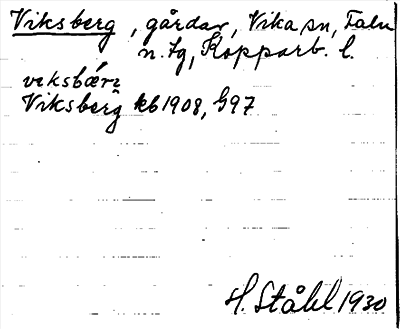 Viksberg, gårdar, Vika sn, Falu
n. tg, Kopparb. l.
viksbærj
Viksberg kb 1908, G97
H. Ståhl 1930